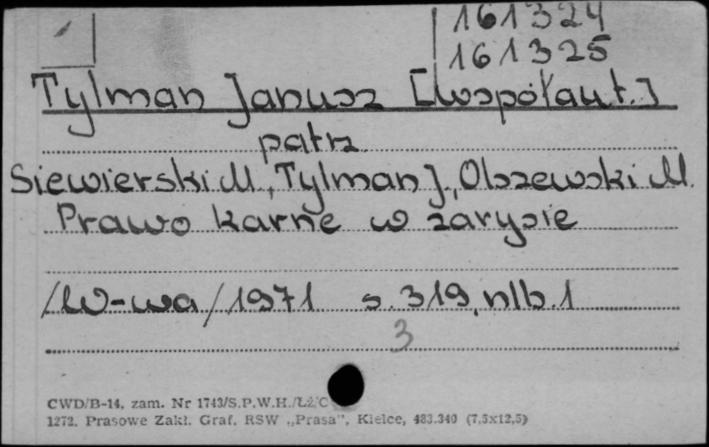 161324
161325
Tylman Janusz [Współaut.]
patrz
Siewierski M., Tylman J., Olszewski M.
Prawo karne w zarysie
/W-wa/1971 s. 319, nlb. 1
3
CWD/B-14, zam. Nr 1743/S.P.W.H./Lż/C
1272. Prasowe Zakł. Graf. RSW „Prasa”, Kielce, 483.340 (7,5x12,5)